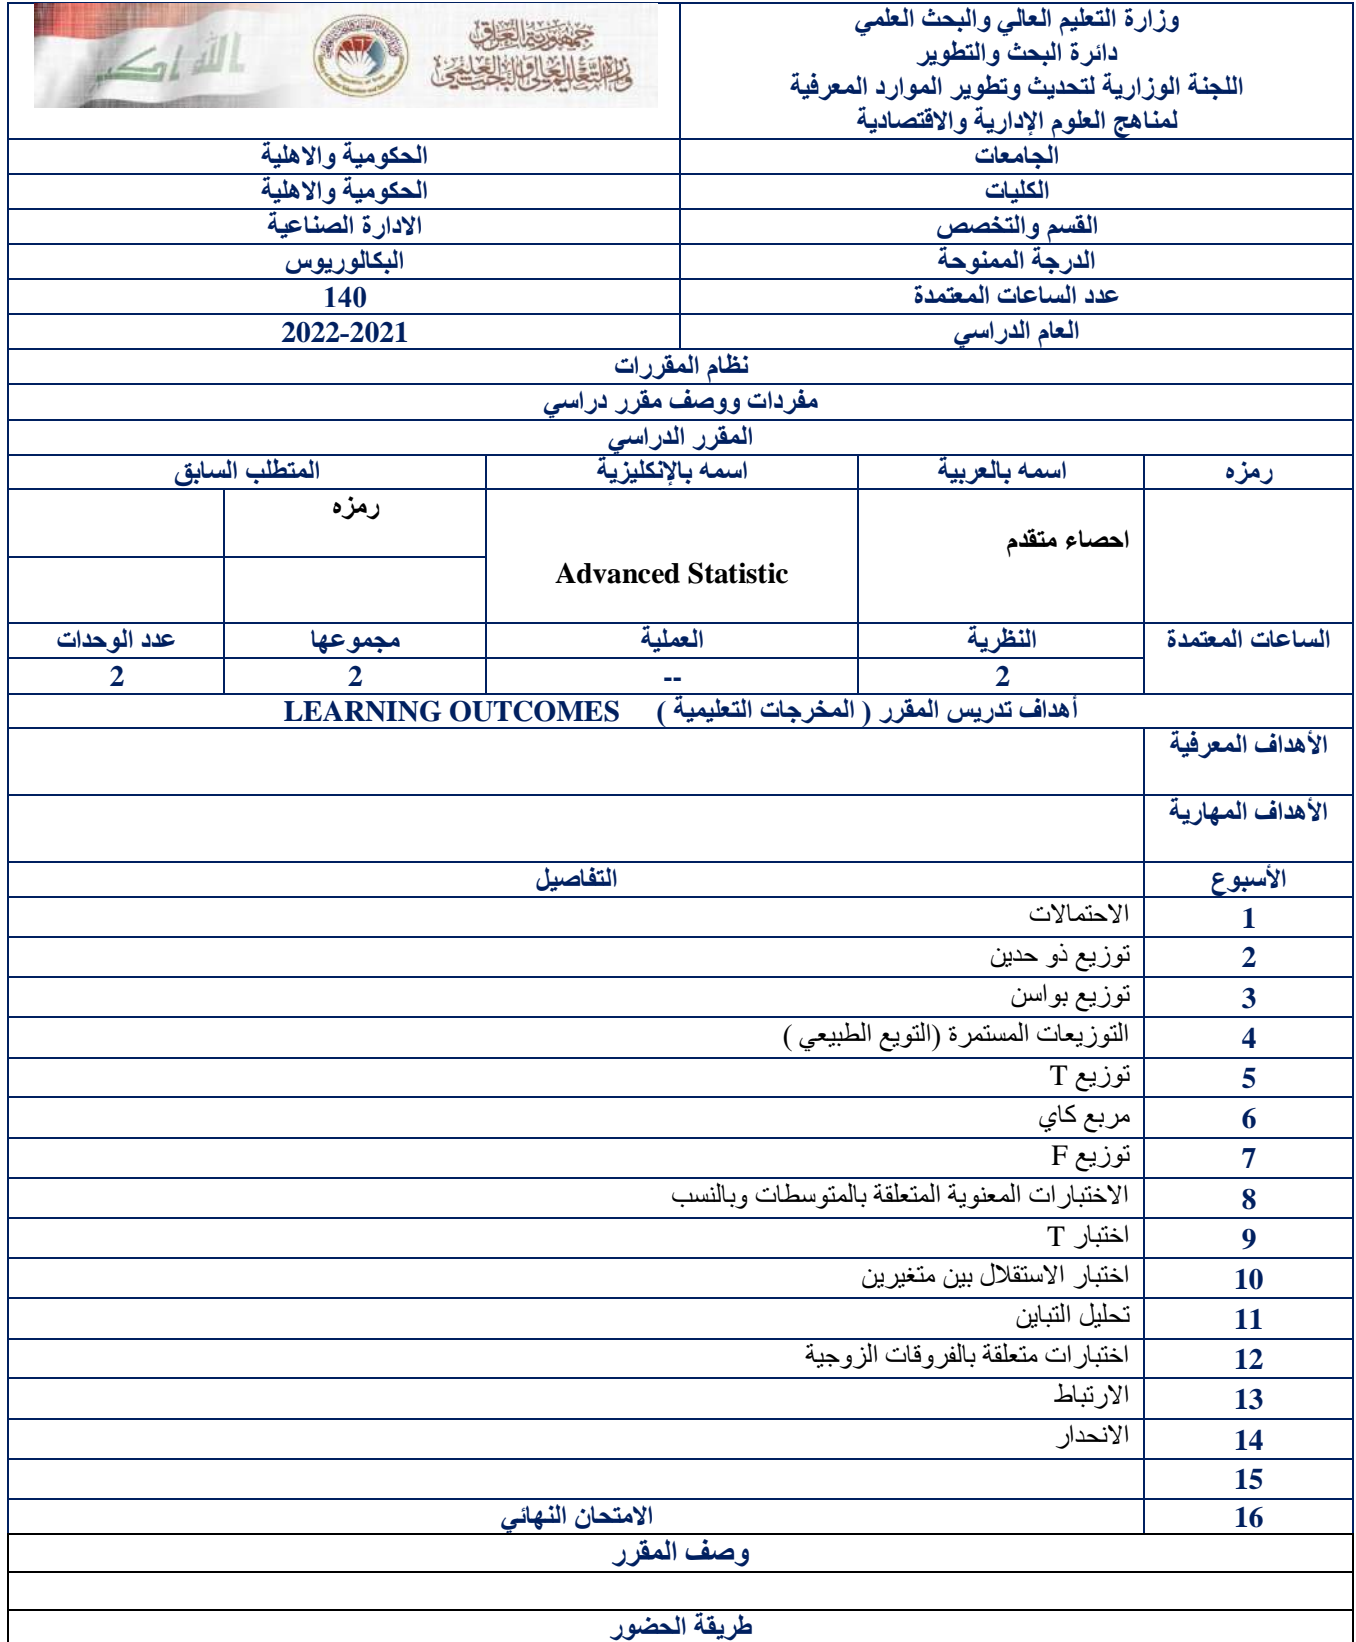 وزارة التعليم العالي والبحث العلمي
دائرة البحث والتطوير
اللجنة الوزارية لتحديث وتطوير الموارد المعرفية
لمناهج العلوم الإدارية والاقتصادية
جمهورية العراق
وزارة التعليم العالي والبحث العلمي
الله اكبر
الجامعات الحكومية والاهلية
الكليات الحكومية والاهلية
القسم والتخصص الادارة الصناعية
الدرجة الممنوحة البكالوريوس
عدد الساعات المعتمدة 140
العام الدراسي 2021-2022
نظام المقررات
مفردات ووصف مقرر دراسي
المقرر الدراسي
رمزه اسمه بالعربية اسمه بالإنكليزية المتطلب السابق
رمزه
احصاء متقدم
Advanced Statistic
الساعات المعتمدة النظرية العملية مجموعها عدد الوحدات
2 -- 2 2
أهداف تدريس المقرر ( المخرجات التعليمية ) LEARNING OUTCOMES
الأهداف المعرفية
الأهداف المهارية
الأسبوع التفاصيل
1 الاحتمالات
2 توزيع ذو حدين
3 توزيع بواسن
4 التوزيعات المستمرة (التويع الطبيعي )
5 توزيع T
6 مربع كاي
7 توزيع F
8 الاختبارات المعنوية المتعلقة بالمتوسطات وبالنسب
9 اختبار T
10 اختبار الاستقلال بين متغيرين
11 تحليل التباين
12 اختبارات متعلقة بالفروقات الزوجية
13 الارتباط
14 الانحدار
15
16 الامتحان النهائي
وصف المقرر
طريقة الحضور